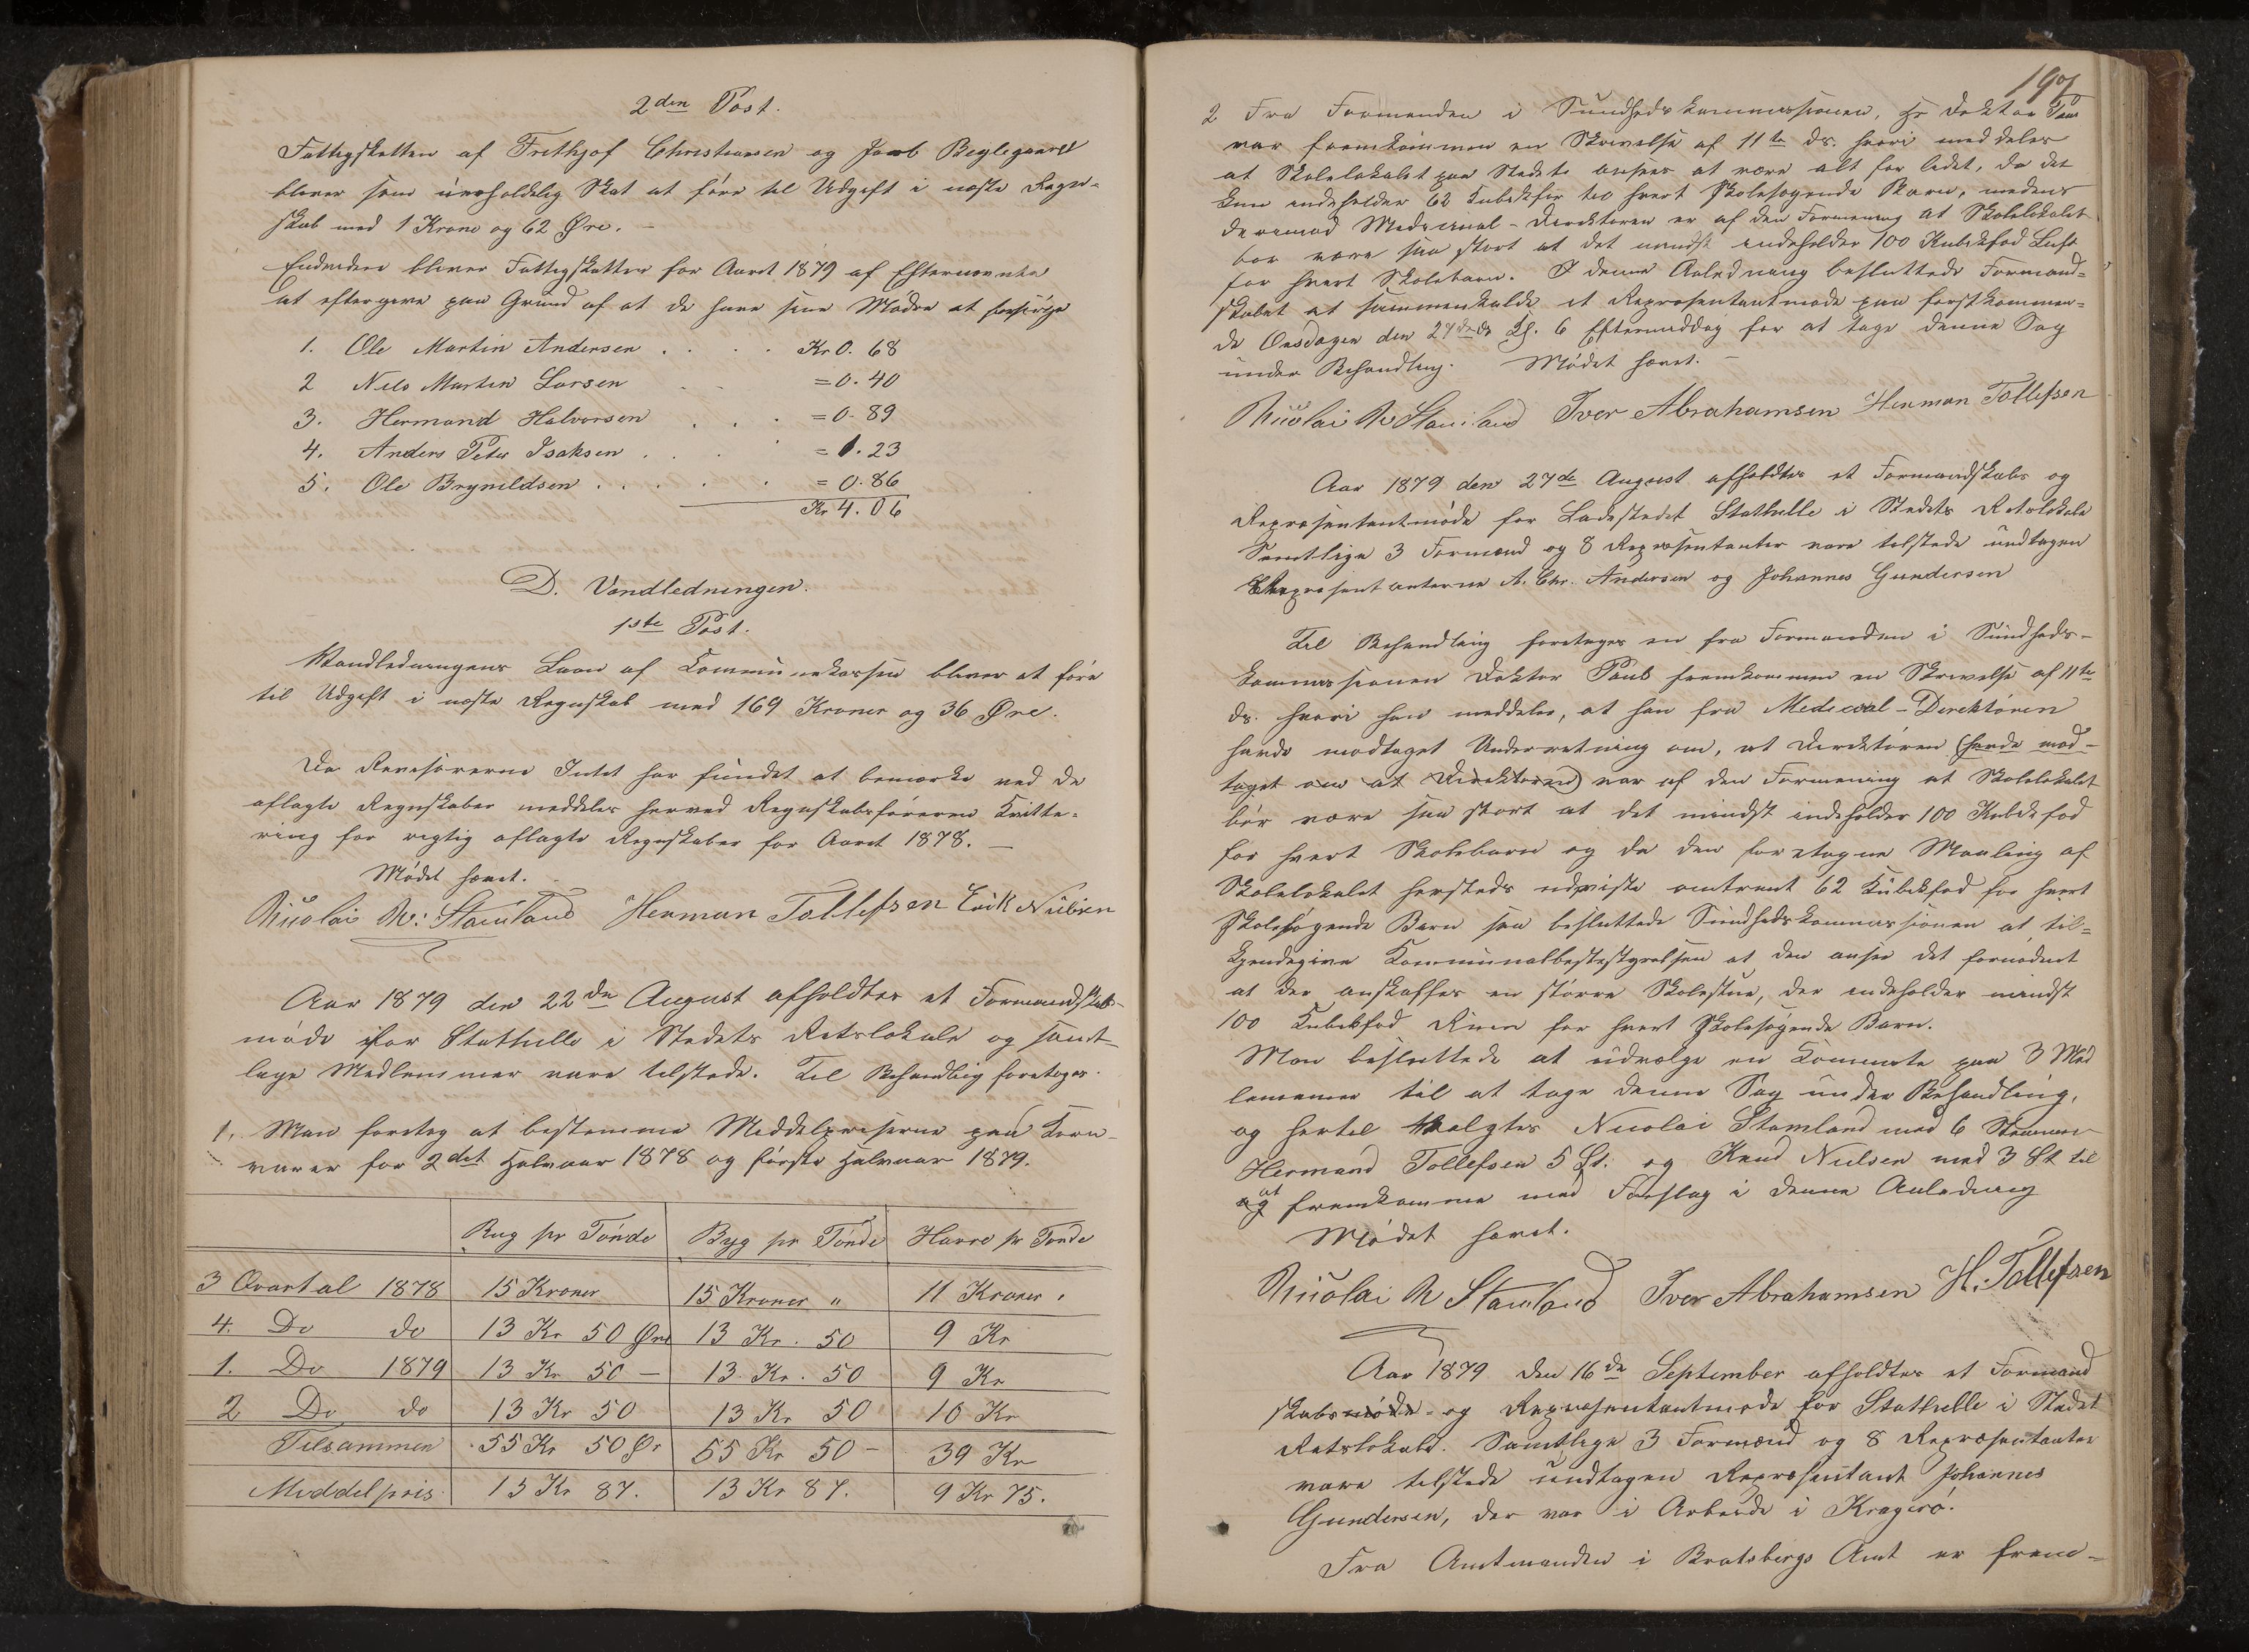 2den Post.
Fattigskatten af Frithjof Christiansen og Jacob Beglegaard
bliver som uerholdelig Skat at føre til Udgift i næste Regn-
skab med 1 Krone og 62 Øre. —
Endvidere bliver Fattigskatten for Aaret 1879 af Efternævnte
at eftergive paa Grund af at de have sine Mødre at forsørge
1. Ole Martin Andersen . . . . Kr 0. 68
2 Nils Martin Larsen . . = 0. 40
3. Hermand Halvorsen . . . = 0. 89
4. Anders Peter Isaksen . . . . = 1. 23
5. Ole Brynildsen . . . . . = 0. 86
Kr 4. 06
D. Vandledningen.
1ste Post.
Vandledningens Laan af Communekassen bliver at føre
til Udgift i næste Regnskab med 169 Kroner og 36 Øre.
Da Revisorerne Intet har fundet at bemærke ved de
aflagte Regnskaber meddeles herved Regnskabsføreren Kvitte-
ring for rigtig aflagte Regnskaber for Aaret 1878. —
Mødet hævet.
Nicolai N: Stamland Herman Tollefsen Erik Nilsen
Aar 1879 den 22de August afholdtes et Formandskabs-
møde for Stathelle i Stedets Retslokale og samt-
lige Medlemmer vare tilstede. Til Behandling foretoges.
1. Man foretog at bestemme Middelpriserne paa Korn-
varer for 2det Halvaar 1878 og første Halvaar 1879.
Rug pr Tønde Byg pr Tønde Havre pr Tønde
3 Qvartal 1878 15 Kroner 15 Kroner " 11 Kroner "
4. Do do 13 Kr 50 Øre 13 Kr. 50 9 Kr
1. Do 1879 13 Kr 50 — 13 Kr. 50 9 Kr
2 Do do 13 Kr 50 13 Kr 50 10 Kr
Tilsammen 55 Kr 50 Ør 55 Kr 50 — 39 Kr
Middelpris 13 Kr 87. 13 Kr 87. 9 Kr 75.
197
2 Fra Formanden i Sundhedskommissionen, Hr Doktor
var fremkommen en Skrivelse af 11te ds. hvori meddeles
at Skolelokalet paa Stedet ansees at være alt for lidet, da det
kun indeholder 62 Kubikfod til hvert skolesøgende Barn, medens
derimod Medicinal-Direktøren er af den Formening at Skolelokalet
bør være saa stort at det mindst indeholder 100 Kubikfod Luft
for hvert Skolebarn. I denne Anledning besluttede Formand-
skabet at sammenkalde et Repræsentantmøde paa førstkommen-
de Onsdagen den 27de ds Kl. 6 Eftermiddag for at tage denne Sag
under Behandling. Mødet hævet. —
Nicolai N Stamland Iver Abrahamsen Herman Tollefsen
Aar 1879 den 27de August afholdtes et Formandskabs og
Repræsentantmøde for Ladestedet Stathelle i Stedets Retslokale
Samtlige 3 Formænd og 8 Repræsentanter vare tilstede undtagen
Repræsentanterne A. Chr. Andersen og Johannes Gundersen
Til Behandling foretoges en fra Formanden i Sundheds-
kommissionen Doktor Paus fremkommen en Skrivelse af 11te
ds. hvori han meddeler, at han fra Medicinal-Direktøren
havde modtaget Underretning om, at Direktøren (havde mod-
taget om at Direktøren) var af den Formening at Skolelokalet
bør være saa stort at det mindst indeholder 100 Kubikfod
for hvert Skolebarn og da den foretagne Maaling af
Skolelokalet hersteds udviste omtrent 62 Kubikfod for hvert
skolesøgende Barn saa besluttede Sundhedskommissionen at til-
kjendegive Kommunalbestyrelsen at den anser det fornødent
at der anskaffes en større Skolestue, der indeholder mindst
100 Kubikfod Rum for hvert skolesøgende Barn.
Man besluttede at udvælge en Kommite paa 3 Med
lemmer til at tage denne Sag under Behandling,
og hertil valgtes Nicolai Stamland med 6 Stemmer
Hermand Tollefsen 5 St. og Knud Nielsen med 3 St til
at fremkomme med Forslag i denne Anledning
Mødet hævet.
Nicolai N Stamland Iver Abrahamsen H. Tollefsen
Aar 1879 den 16de September afholdtes et Formand
skabsmøde og Repræsentantmøde for Stathelle i Stedet
Retslokale. Samtlige 3 Formænd og 8 Repræsentanter
vare tilstede undtagen Repræsentant Johannes
Gundersen, der var i Arbeide i Kragerø.
Fra Amtmanden i Bratsbergs Amt er frem-